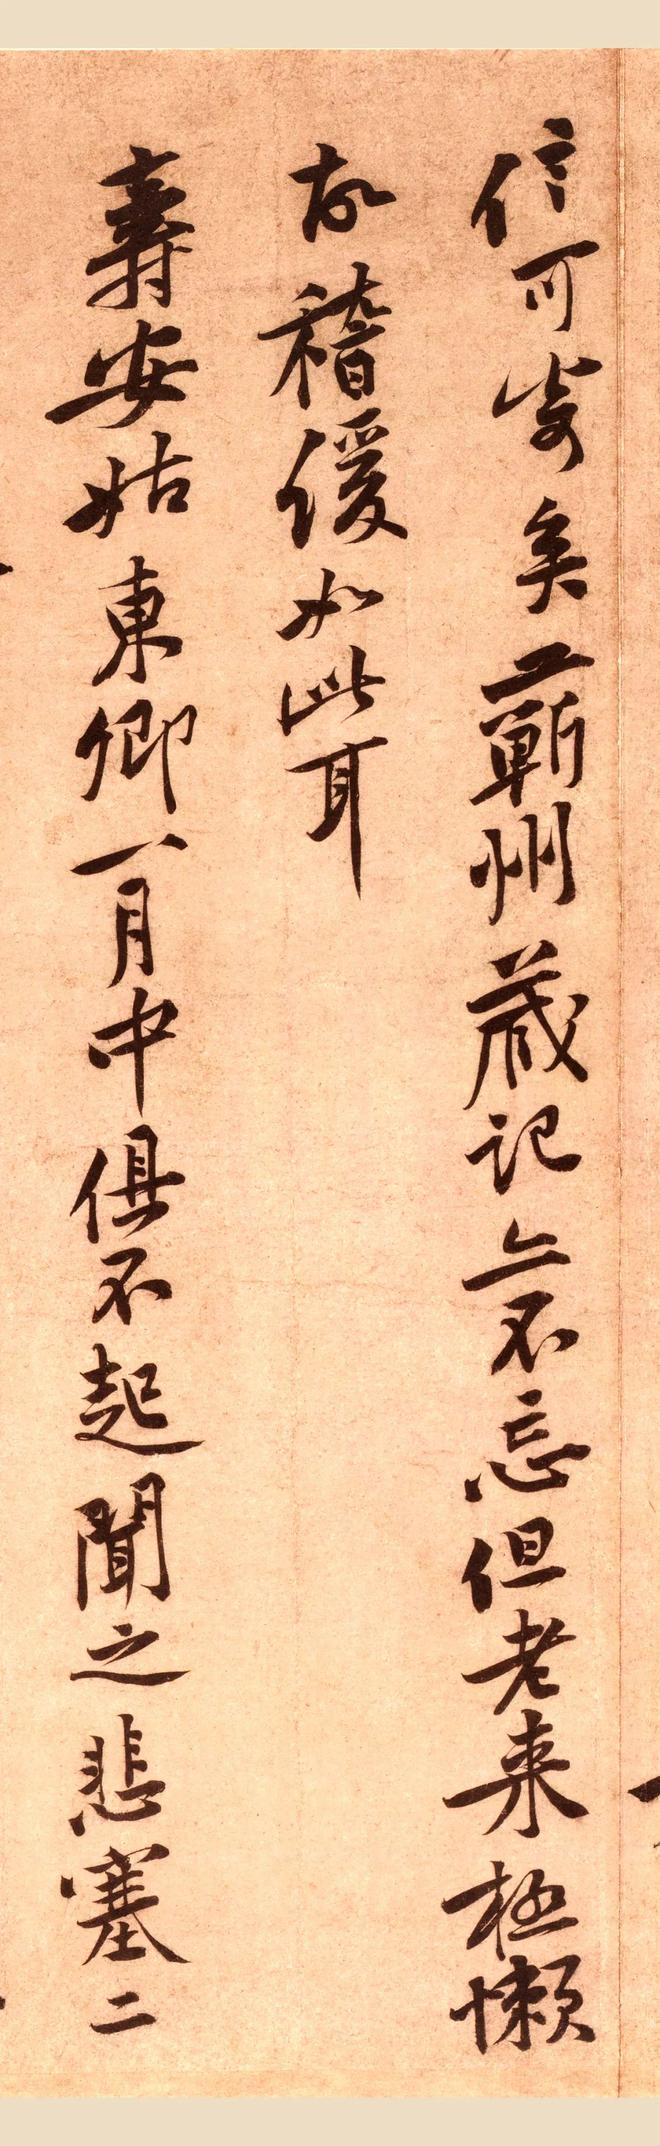 信可寄矣二蘄州藏記亦不忘但老來極懶
故稽緩如此耳
壽安姑東卿一月中俱不起聞之悲塞二